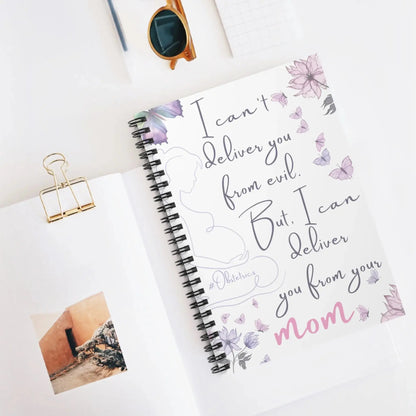 I can't
deliver you
from evil.
But, I can
deliver
you from your
mom
#Obstetrics